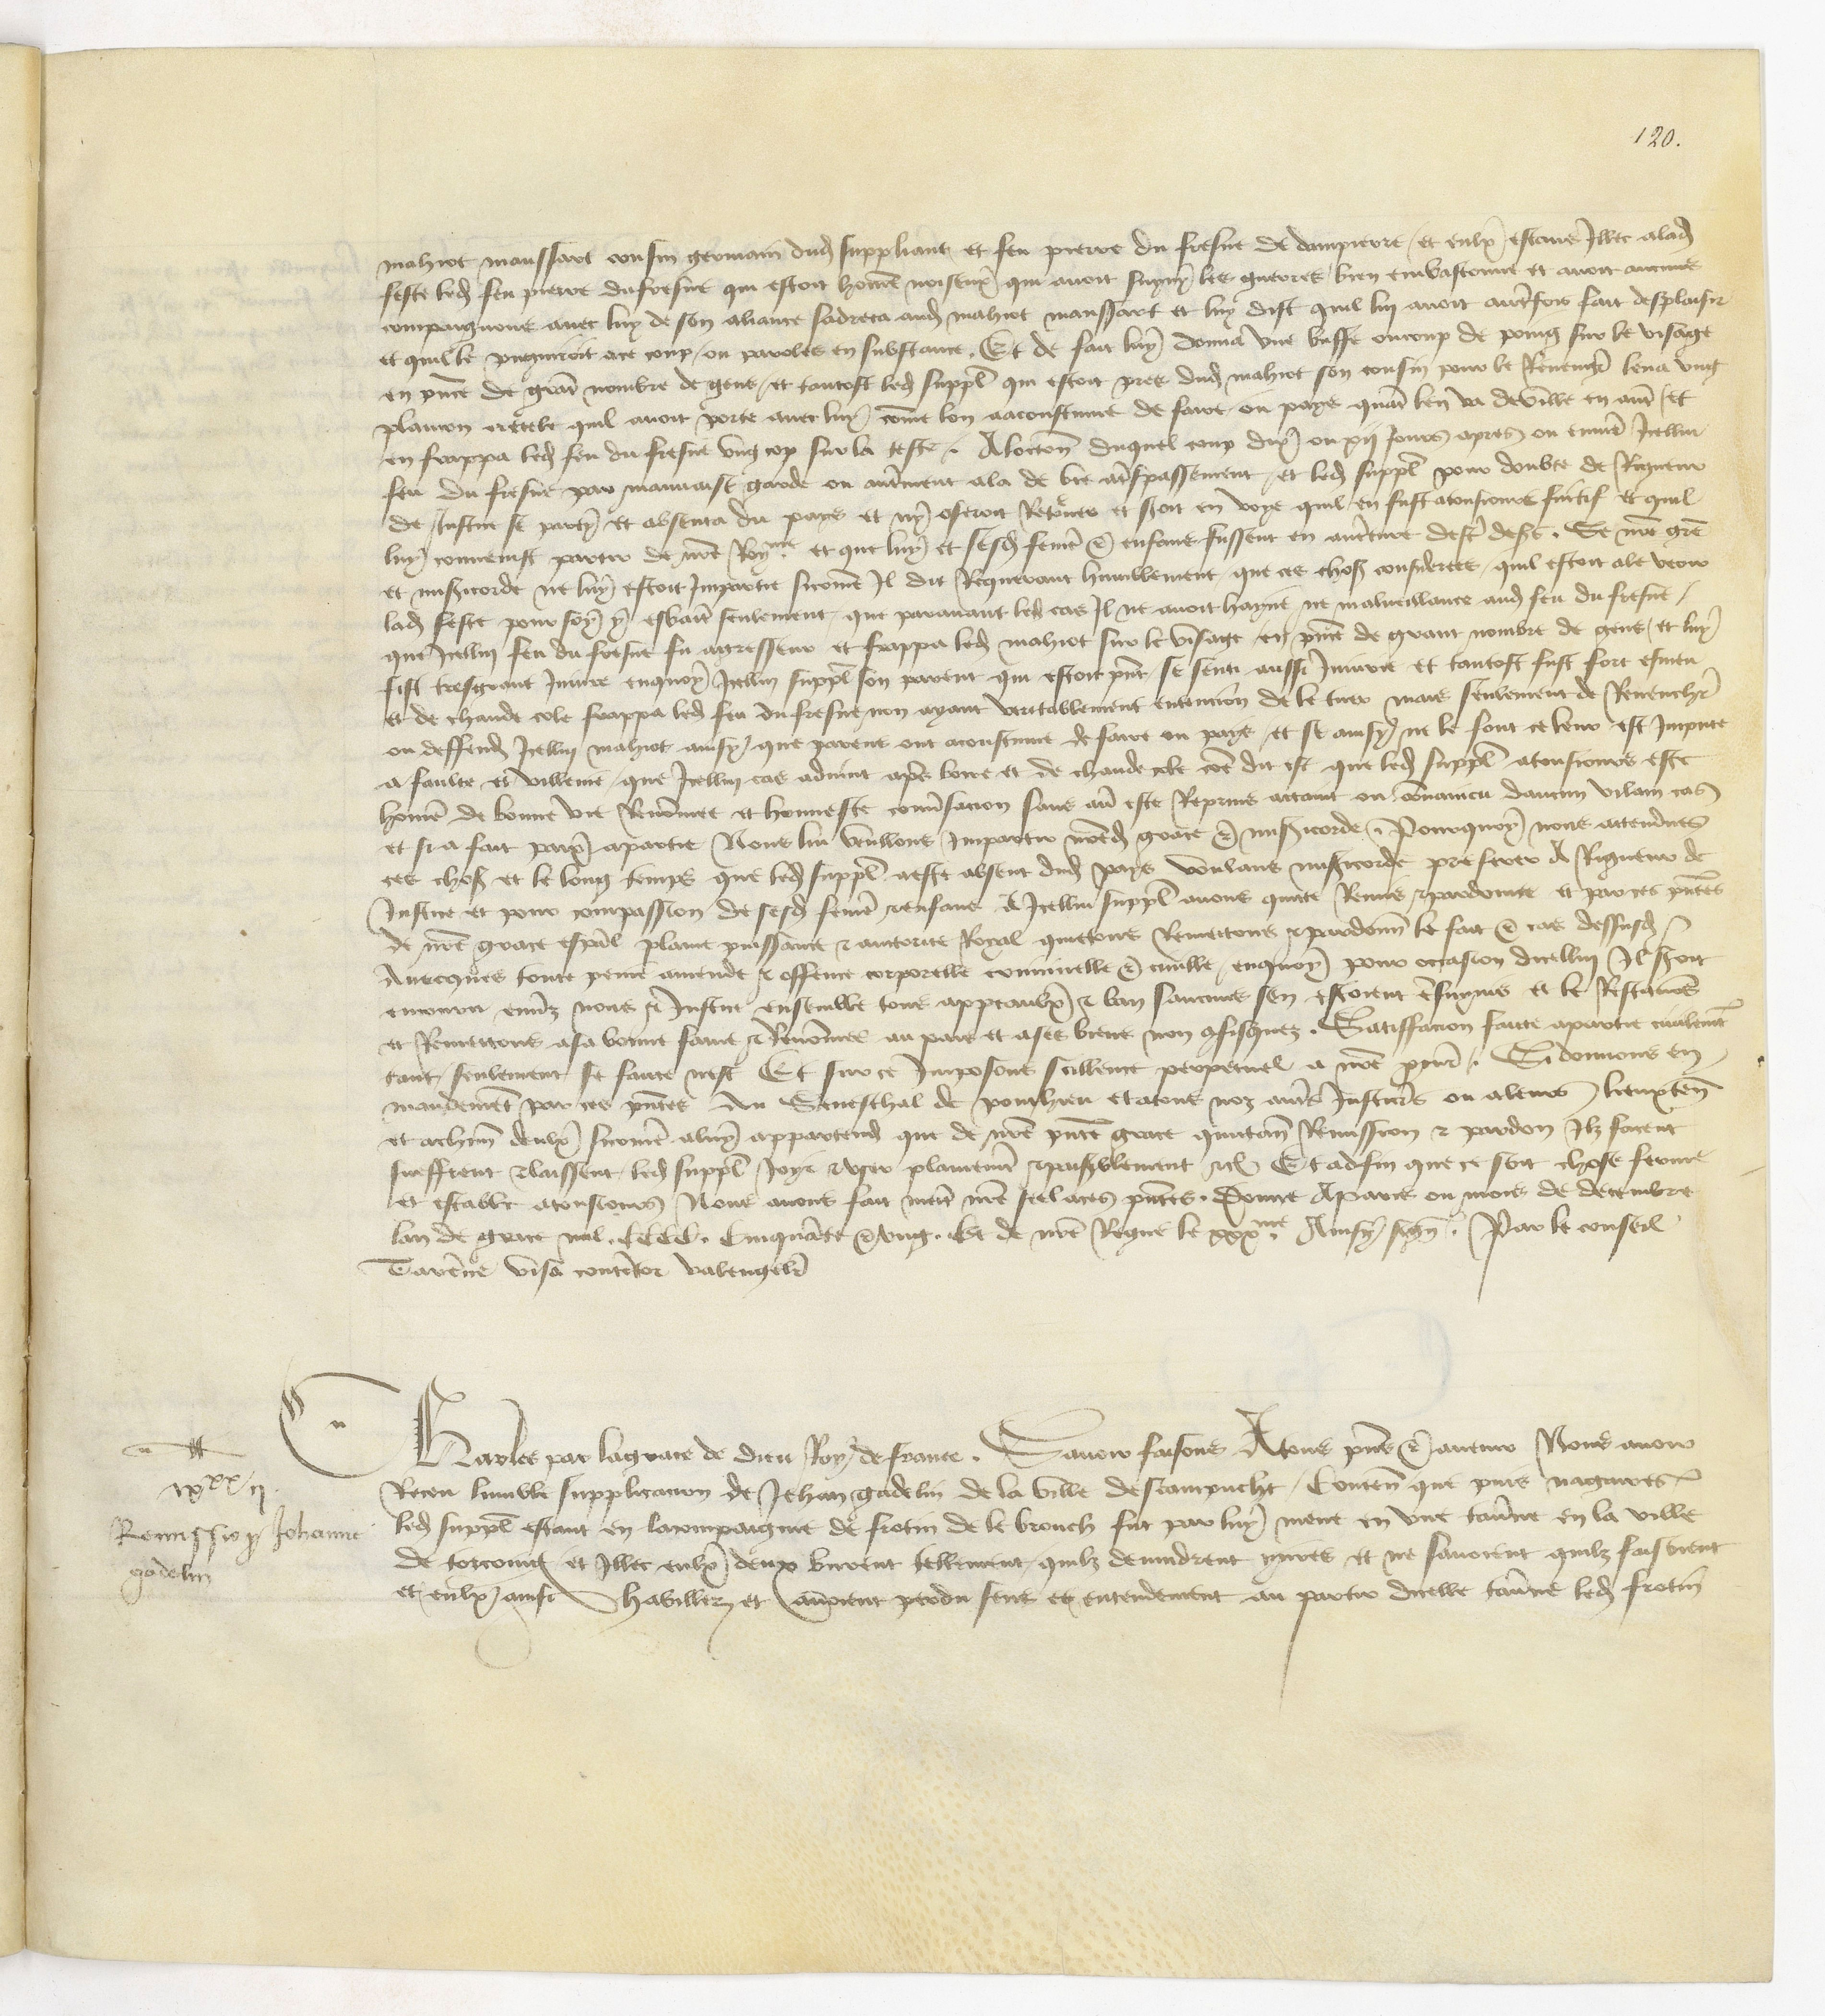 120.
mahiot manssart cousin germain dud suppliant et feu pierre du fresne de dompierre / et eulx estans Illec alad
feste led feu pierre dufresne qui estoit home noiseux qui avoit suyuy les guerres bien embastonne et avoit aucuns
compaignons avec luy de son aliance sadreca aud mahiot manssart et luy dist quil lui avoit autrefois fait desplaisir
et quil le pugniroit ace coup / ou paroles en substance. Et de fait luy donna une buffe ou coup de poing sur le visage
en pnce de grant nombre de gens / et tantost led suppl qui estoit pres dud mahiot son cousin pour le Revencher leva ung
plancon quil avoit porte avec luy / come lon aacoustume de faire ou pays quant len va deville en aut / et
en frappa led feu du fresne ung cop sur la teste. A loccon duquel coup dix ou xij jours apres ou environ Icellui
feu du fresne par mauvaise garde ou autrement ala de vie atrespassement / et led suppl pour doubte de Rigueur
de Justice se party et absenta du pays et ny oseroit Retourner et seroit en voye quil en fust atousiours fuitif et quil
luy convenist partir de nre Royme et que luy et sesd feme & enfans fussent en aventure destre desers. Se nre grace
et misericorde ne luy estoit Impartie sicomme Il dit Requerant humblement / que ces choses considerees / quil estoit ale veoir
lad feste pour soy y esbatre seulement / que paravant led cas Il ne avoit hayne ne malveillance aud feu du fresne /
que Icellui feu du fresne fu agresseur et frappa led mahiot sur le visage en pnce de grant nombre de gens / et luy
fist tresgrant Injure enquoy Icellui suppl son parent qui estoit pnt / se senti aussi Injurie et tantost fust fort esmeu
et de chaude cole frappa led feu du fresne / non ayant veritablement entencion de le tuer mais seulement de Revencher
ou deffend Icellui mahiot ainsy / que parens ont acoustume de faire ou pays / et se ainsy ne le font ce leur est Impute
a faulte et villenie / que Icellui cas advint apres boire et de chaude cole come dit est que led suppl atousiours este
home de bonne vie Renomee et honneste conversacion sans avoir este Reprins attaint ou convaincu daucun vilain cas
et sia fait paix apartie Nous lui vueillons Impartir nosd grace & misericorde. Pourquoy nous attendues
ces choses et le long temps que led suppl aeste absent dud pays voulans misericorde preferer A Rigueur de
Justice et pour compassion de sesd feme & enfans A Icellui suppl avons quicte Remis & pardonne et par ces pntes
de nre grace espal plaine puissance & auctorite Royal quictons Remettons & pardonnons le fait & cas dessusd
Avecques toute peine amende & offence corporelle criminelle & civille / enquoy pour occasion dicellui Il seroit
encouru envers nous & Justice ensemble tous appeaulx & ban saucuns sen estoient ensuyuis et le Restituons
et Remettons asa bonne fame & Renomee au pays et ases biens non confisquez. Satisfacion faicte apartie civilement
tant seulement se faicte nest Et sur ce Imposons scillence perpetuel a nre procureur. Si donnons en
mandement par ces pntes Au Seneschal de ponthieu etatous noz autres Justiciers ou aleurs lieuxten
et achun deulx sicome aluy appartend que de nre pnte grace quictance Remission & pardon Ilz facent
sueffrent & laissent led suppl Joyr & user plainement & paisiblement &c Et adfin que ce soit chose ferme
et estable atousiours Nous avons fait mettre nre seel aces pntes. Donne Aparis ou mois de decembre
lan de grace mil. CCCC. Cinquante & ung. Et de nre Regne le xxxme. Ainsy signe. Par le conseil
visa contentor valengelier
Charles par lagrace de dieu Roy de france. Savoir faisons Atous pns & avenir Nous avoir
Receu lumble supplicacion de Jehan gadelin de la ville Conten que puis nagaires
led suppl estant en lacompaignie de frotin de le brouch fut par luy mene en une taverne en la ville
de torcoing et Illec eulx deux burent tellement quilz devindrent yvres et ne savoient quilz faisoient
et eulx ainsi habillez et avoient perdu sens et entendement au partir dicelle taverne led frotin
Remissio Johanne
godelin